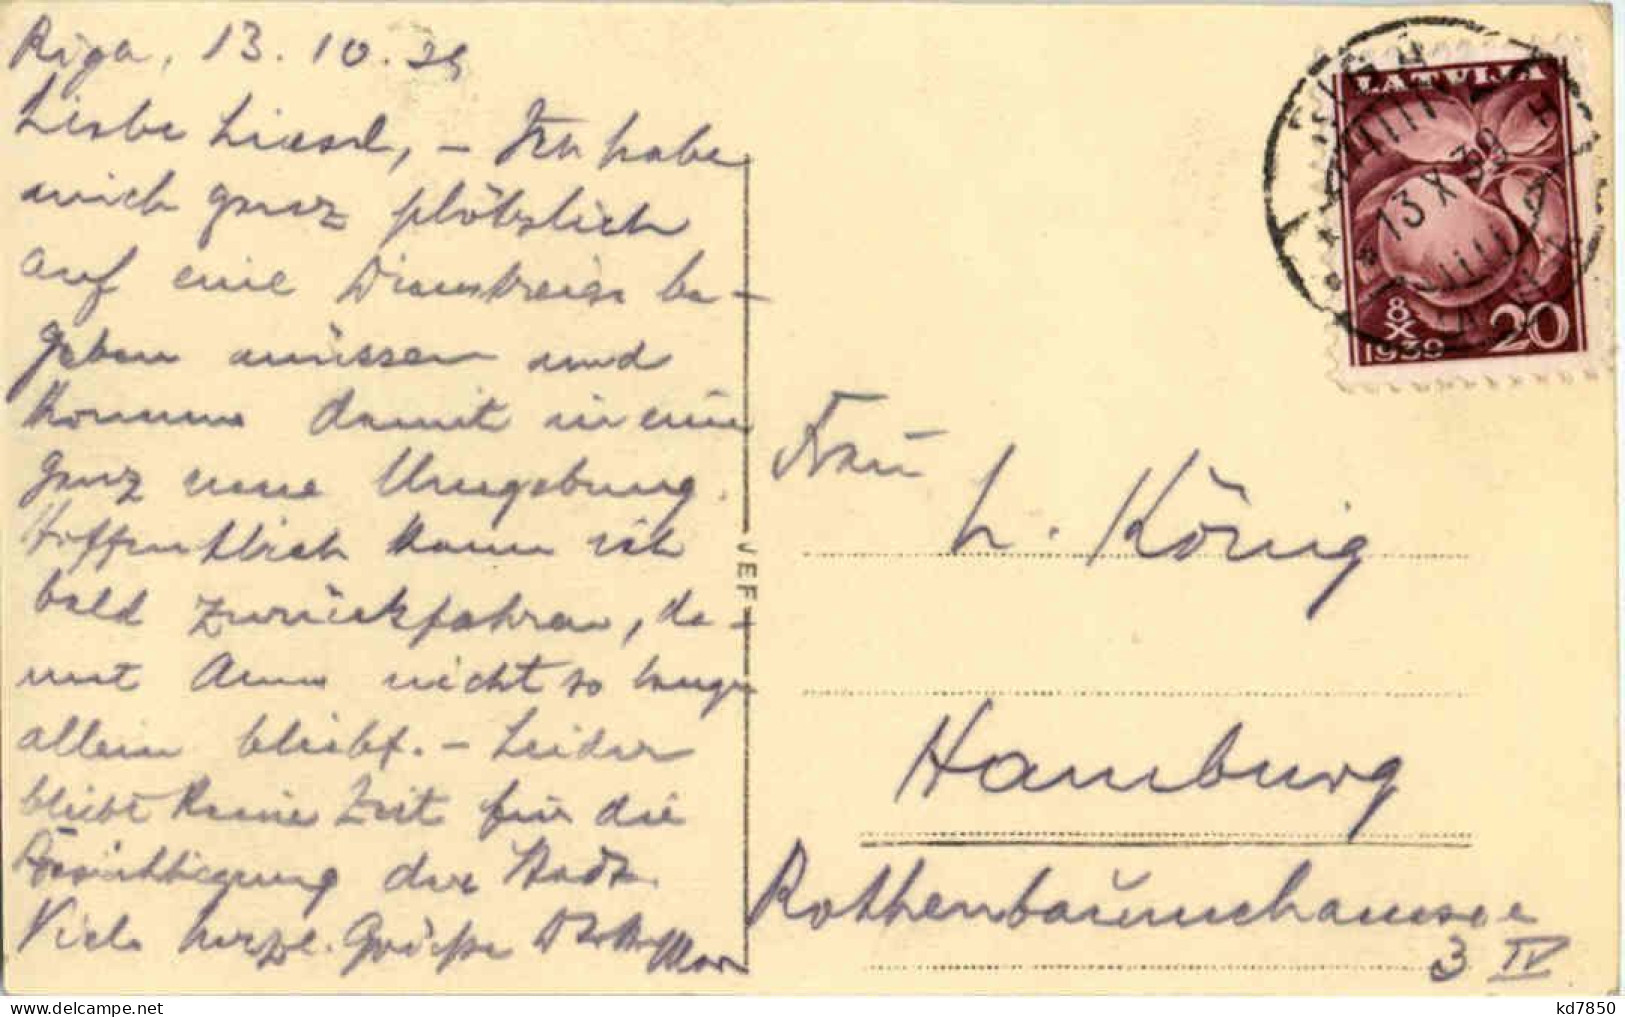 Riga, 13.10.39
Liebe Liesel, – Ich habe
mich ganz plötzlich
auf eine Dienstreise be-
geben müssen und
komme damit in eine
ganz neue Umgebung.
Hoffentlich kann ich
bald zurückfahren, da-
mit Anne nicht so lange
allein bleibt. – Leider
bleibt keine Zeit für die
Besichtigung der Stadt.
Viele herzl. Grüße
JEF
LATVIJA
RIGA
13 X 39
8
X
1939
20
Frau
L. König
Hamburg
Rothenbaumchaussee
3 IV
kd7850